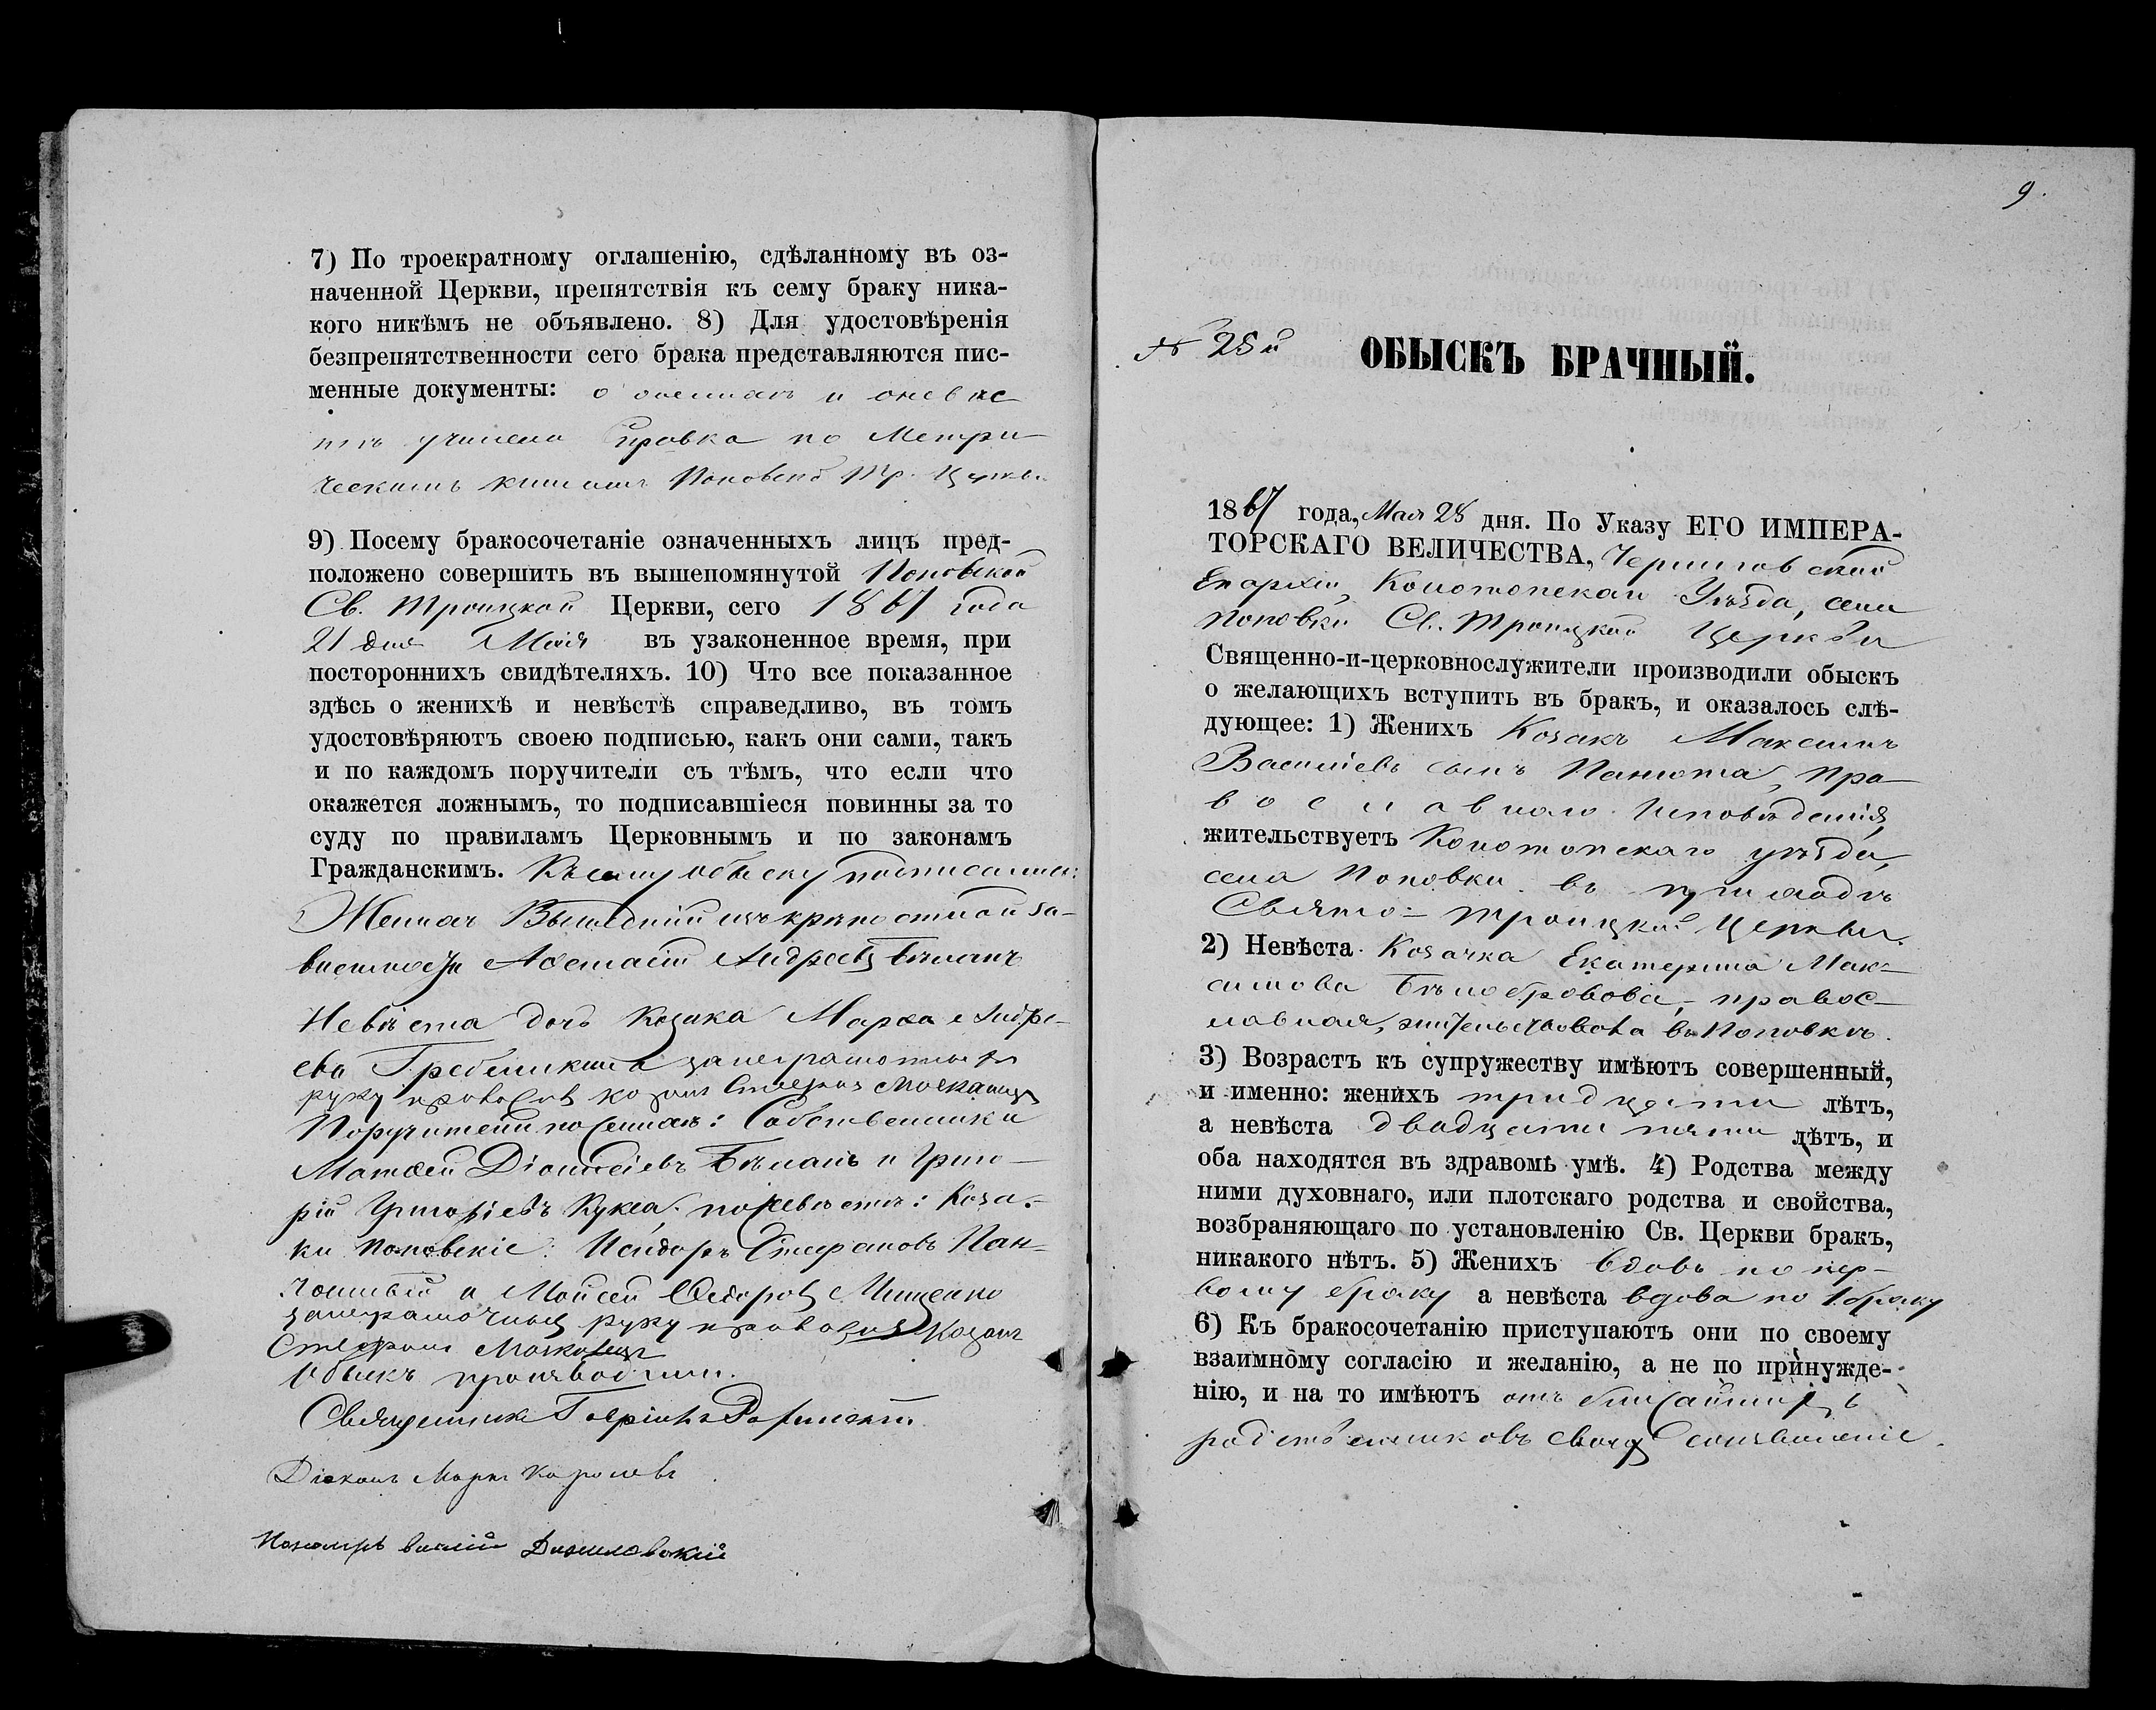 7) По троекратному оглашенію, сдѣланному въ оз-
наченной Церкви, препятствія къ сему браку ника-
кого никѣмъ не объявлено. 8) Для удостовѣренія
безпрепятственности сего брака представляются пис-
менные документы: о женихѣ и о невѣс
тѣ учинена справка по Метри-
ческимъ книгамъ Поповской Тр. Церкви
9) Посему бракосочетаніе означенныхъ лицъ пред-
положено совершить въ вышепомянутой Поповской
Св. Троицкой Церкви, сего 1867 года
21 дня Мая въ узаконенное время, при
постороннихъ свидѣтеляхъ. 10) Что все показанное
здѣсь о женихѣ и невѣстѣ справедливо, въ томъ
удостовѣряютъ своею подписью, какъ они сами, такъ
и по каждомъ поручители съ тѣмъ, что если что
окажется ложнымъ, то подписавшіеся повинны за то
суду по правиламъ Церковнымъ и по законамъ
Гражданскимъ. Къ сему обыску подписались:
Женихъ Вышедшій изъ крѣпостной за-
висимости Андреевъ Бѣланъ
Невѣста дочь Козака Марѳа Андре-
ева Гребеникова за неграмотных
руку приложилъ козакъ Стефанъ
Поручители по женихѣ: Собственники
Матѳей Діонисіевъ Бѣланъ и Григо-
рій Григоріевъ Кукса, по невѣстѣ: Коза-
ки Поповскіе: Исидоръ Стефановъ Пан-
и Моисей Ѳедоровъ Мищенко
за неграмотных руку приложилъ Козакъ
Стефанъ
Обыскъ производили:
Священникъ
Діаконъ Маркъ Королевъ
Пономарь Василій Даниловскій
9.
№ 25й
ОБЫСКЪ БРАЧНЫЙ.
1867 года, Мая 28 дня. По Указу ЕГО ИМПЕРА-
ТОРСКАГО ВЕЛИЧЕСТВА, Черниговской
Епархіи, Конотопскаго Уѣзда, села
Поповки Св. Троицкой Церкви
Священно-и-церковнослужители производили обыскъ
о желающихъ вступить въ бракъ, и оказалось слѣ-
дующее: 1) Женихъ Козакъ Максимъ
Василіевъ сынъ Панюта, пра-
вославнаго Исповѣданія,
жительствуетъ Конотопскаго уѣзда,
села Поповки въ приходѣ
Свято-Троицкой Церкви.
2) Невѣста Козачка Екатерина Мак-
симова Бѣлобровова, правос-
лавная, жительствовала въ Поповкѣ.
3) Возрастъ къ супружеству имѣютъ совершенный,
и именно: женихъ тридцати лѣтъ,
а невѣста двадцати пяти лѣтъ, и
оба находятся въ здравомъ умѣ. 4) Родства между
ними духовнаго, или плотскаго родства и свойства,
возбраняющаго по установленію Св. Церкви бракъ,
никакого нѣтъ. 5) Женихъ вдовъ по пер-
вому браку а невѣста вдова по 1 браку
6) Къ бракосочетанію приступаютъ они по своему
взаимному согласію и желанію, а не по принужде-
нію, и на то имѣютъ отъ ближайшихъ
родственниковъ своихъ соизволеніе.